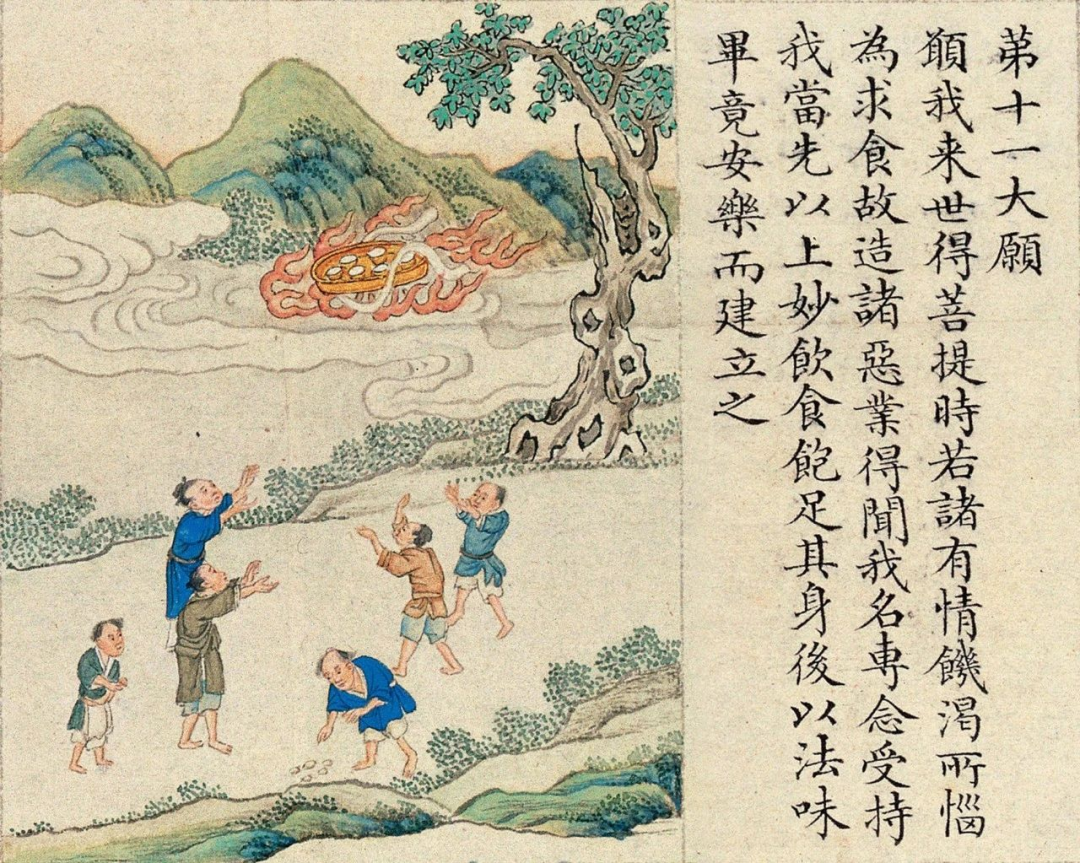 第十一大願
願我来世得菩提時若諸有情饑渴所惱
為求食故造諸惡業得聞我名専念受持
我當先以上妙飲食飽足其身後以法味
畢竟安樂而建立之